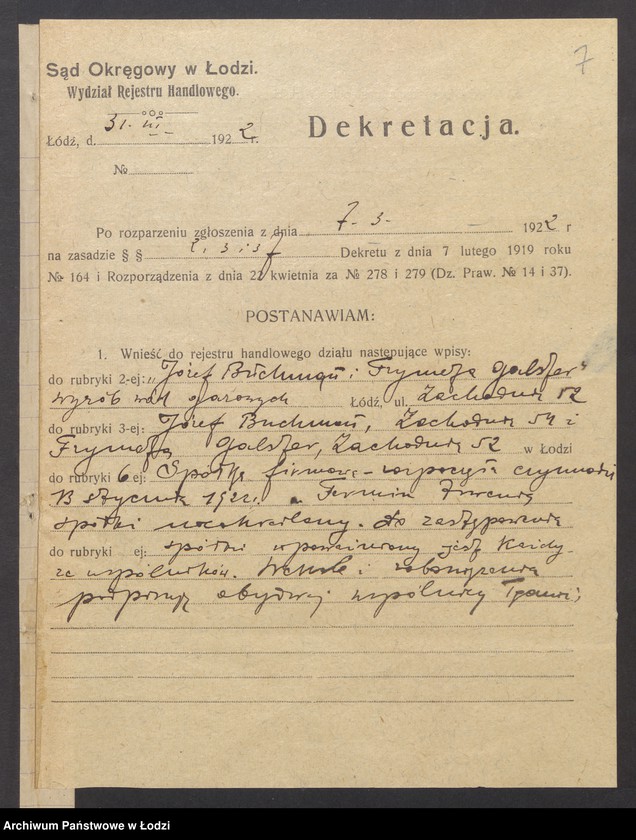 7
Sąd Okręgowy w Łodzi.
Wydział Rejestru Handlowego.
Łódź, d. 31. III 1922 r.
Dekretacja.
№
Po rozparzeniu zgłoszenia z dnia 7 - 3 - 1922 r
na zasadzie § § 2, 3 i Dekretu z dnia 7 lutego 1919 roku
№ 164 i Rozporządzenia z dnia 22 kwietnia za № 278 i 279 (Dz. Praw. № 14 i 37).
POSTANAWIAM:
1. Wnieść do rejestru handlowego działu następujące wpisy:
do rubryki 2-ej: „Józef Buchman i Galster"
wyrób Łódź, ul. Zachodnia 52
do rubryki 3-ej: Józef Buchman, Zachodnia 54 i
Galster, Zachodnia 52 w Łodzi
do rubryki 6 ej: Spółka firmowa - rozpoczęła czynności
13 stycznia 1922 r. Termin trwania
spółki nieokreślony. Do zastępowania
do rubryki ej: spółki upoważniony jest każdy
ze wspólników. Weksle i zobowiązania
podpisują obydwaj wspólnicy
Archiwum Państwowe w Łodzi